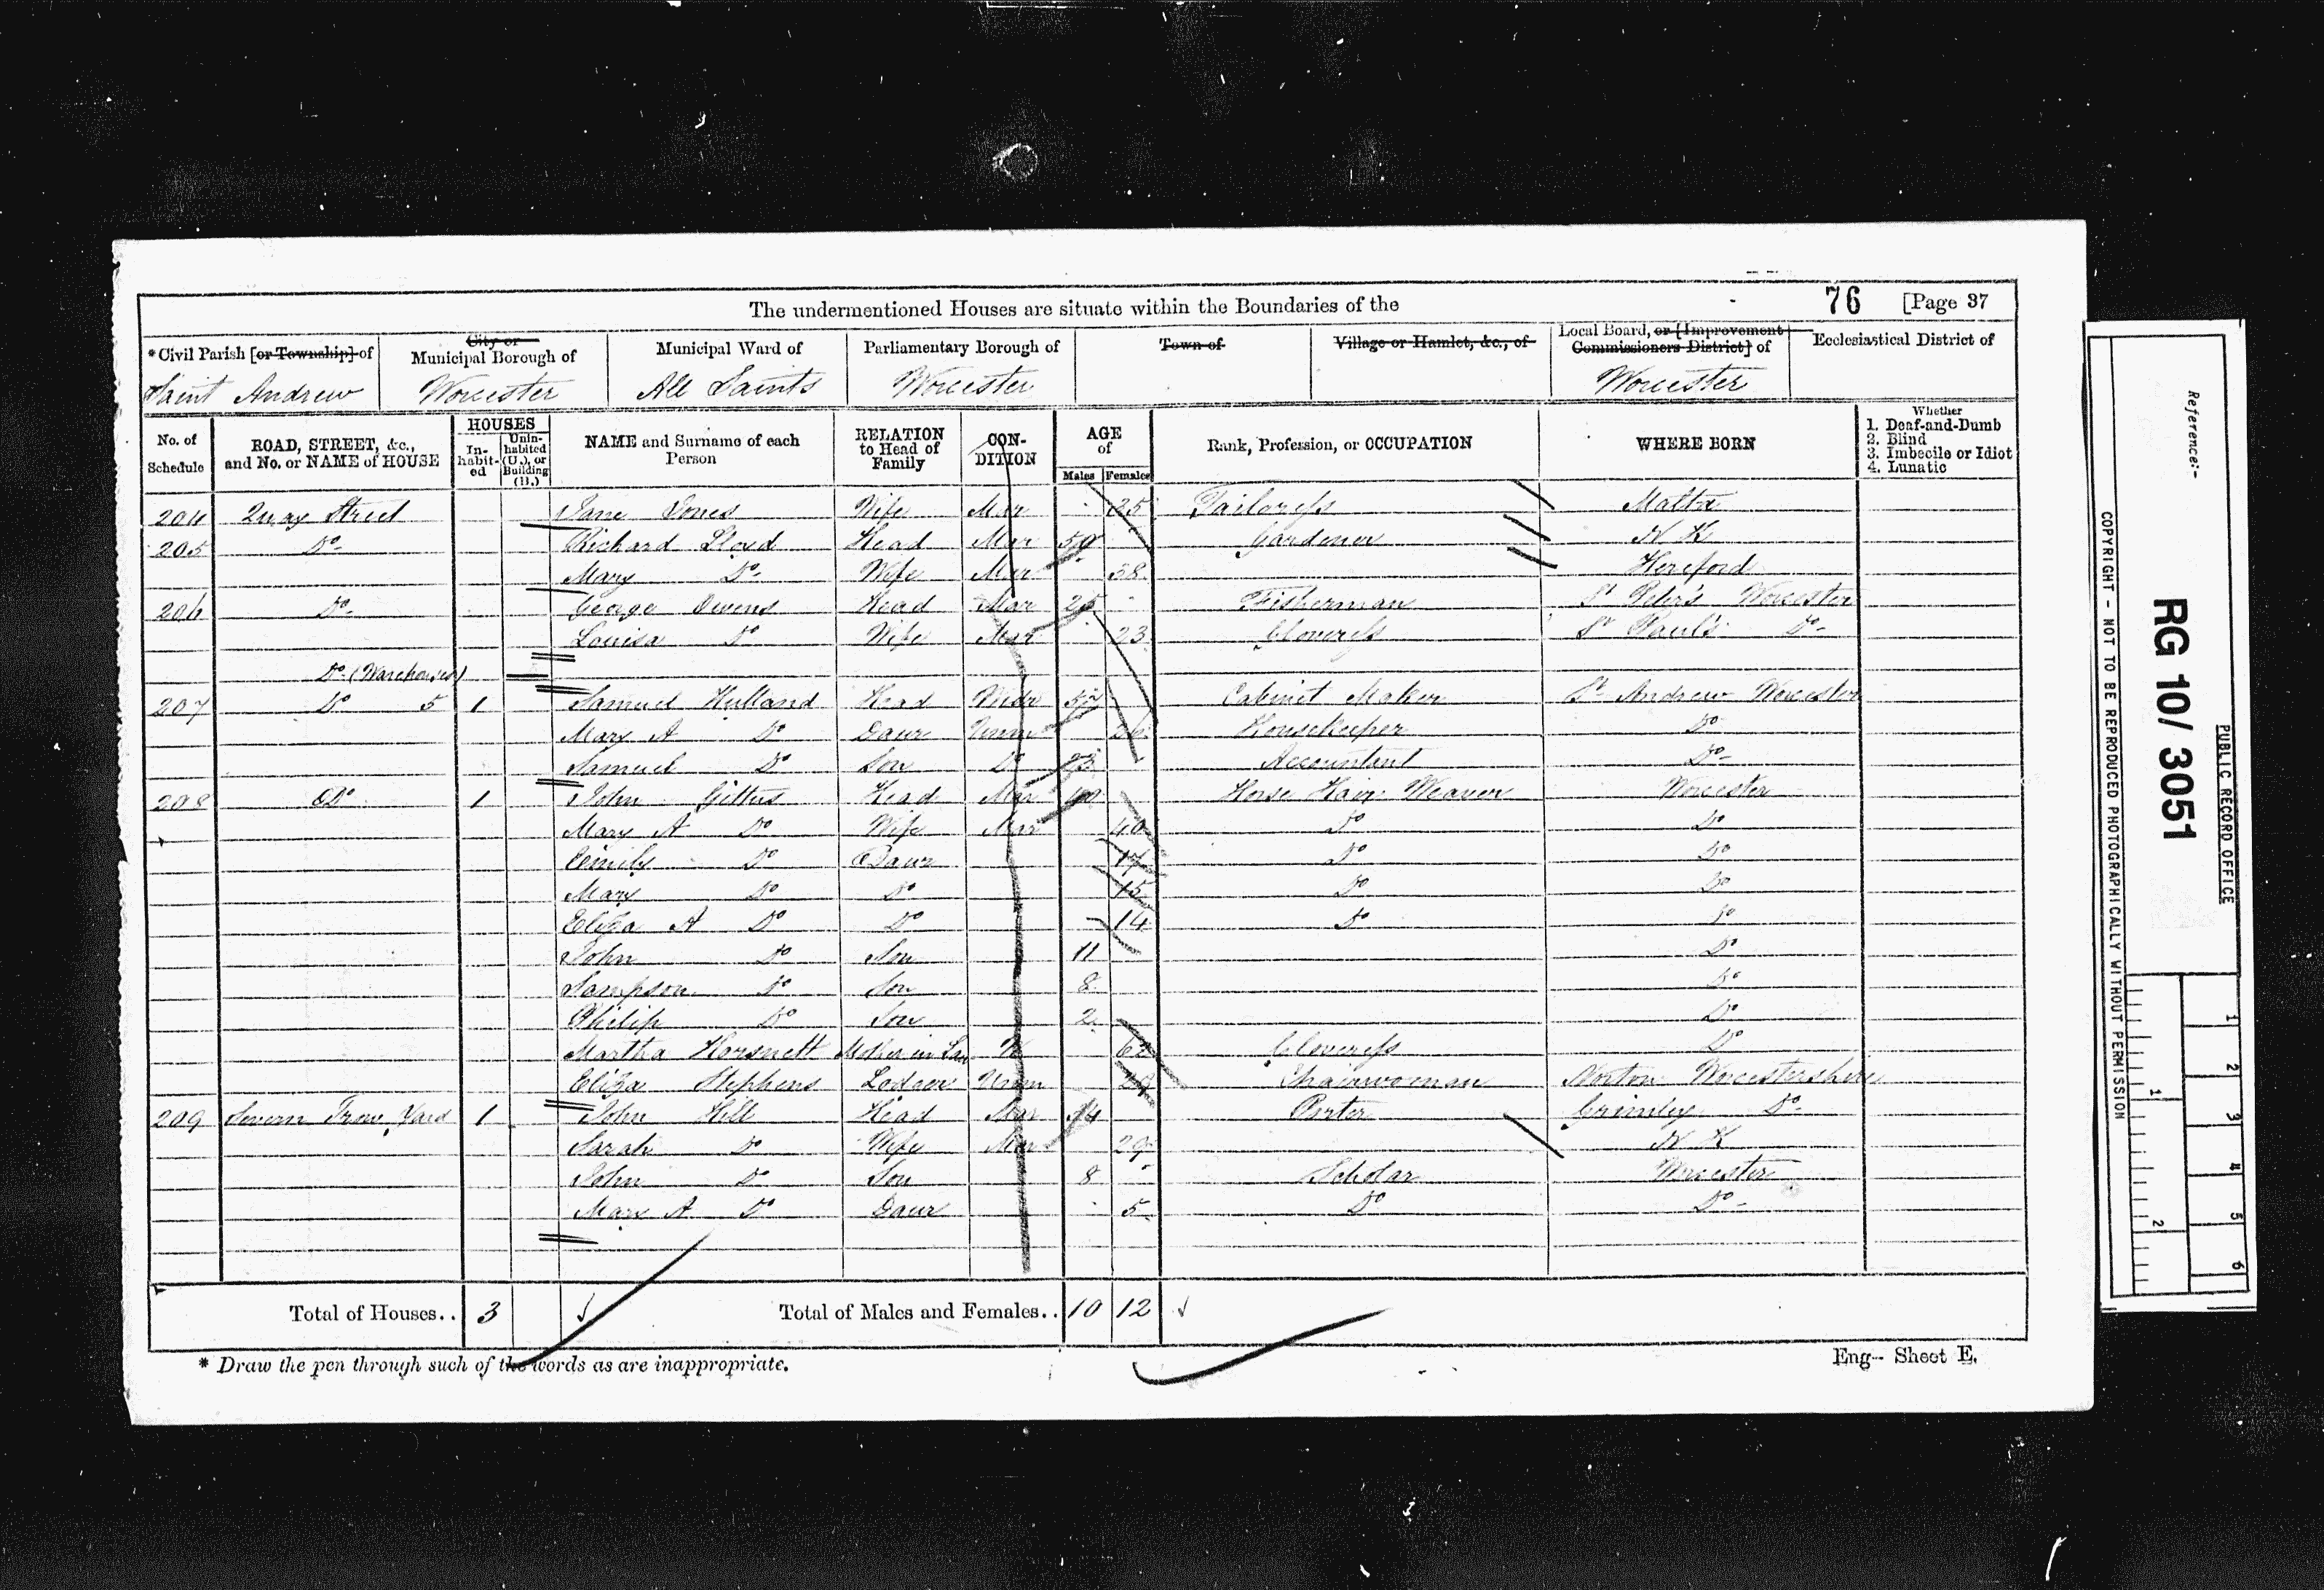 The undermentioned Houses are situate within the Boundaries of the 76 [Page 37
*Civil Parish [or Township] of City or Municipal Borough of Municipal Ward of Parliamentary Borough of Town of Village or Hamlet, &c., of Local Board, or [Improvement Commissioners District] of Ecclesiastical District of
Saint Andrew Worcester All Saints Worcester Worcester
No. of Schedule ROAD, STREET, &c., and No. or NAME of HOUSE HOUSES Inhabited Uninhabited (U.), or Building (B.) NAME and Surname of each Person RELATION to Head of Family CONDITION AGE of Males Females Rank, Profession, or OCCUPATION WHERE BORN Whether 1. Deaf-and-Dumb 2. Blind 3. Imbecile or Idiot 4. Lunatic
204 Quay Street Jane Jones Wife Mar 35 Tailoress Malta
205 Do- Richard Lloyd Head Mar Gardener N K
Mary Do- Wife Mar 58 Hereford
206 Do- George Owens Head Mar 25 Fisherman St Peter's Worcester
Louisa Do Wife Mar 23 Gloveress St Paul's Do-
Do- (Warehouses)
207 Do 5 1 Samuel Hulland Head Widr Cabinet Maker St Andrew Worcester
Mary A Do Daur Unm 26 Housekeeper Do
Samuel Do Son Do 23 Accountant Do-
208 Do 1 John Gittus Head Mar 40 Horse Hair Weaver Worcester
Mary A Do Wife Mar 40 Do Do
Emily Do Daur 17 Do Do
Mary Do Do 15 Do Do
Eliza A Do Do 14 Do Do
John Do Son 11 Do
Sampson Do Son 8 Do
Philip Do Son 2 Do
Martha Horsnett Mother in Law W Gloveress Do
Eliza Stephens Lodger Unm Chairwoman Norton Worcestershire
209 Severn Trow Yard 1 John Hill Head Mar 34 Porter Grimley Do-
Sarah Do Wife Mar 29 N K
John Do Son 8 Scholar Worcester
Mary A Do Daur 5 Do Do-
Total of Houses.. 3 Total of Males and Females.. 10 12
* Draw the pen through such of the words as are inappropriate.
Eng-- Sheet E.
Reference:-
RG 10/ 3051
PUBLIC RECORD OFFICE
COPYRIGHT - NOT TO BE REPRODUCED PHOTOGRAPHICALLY WITHOUT PERMISSION
1 2 3 4 5 6
1 2